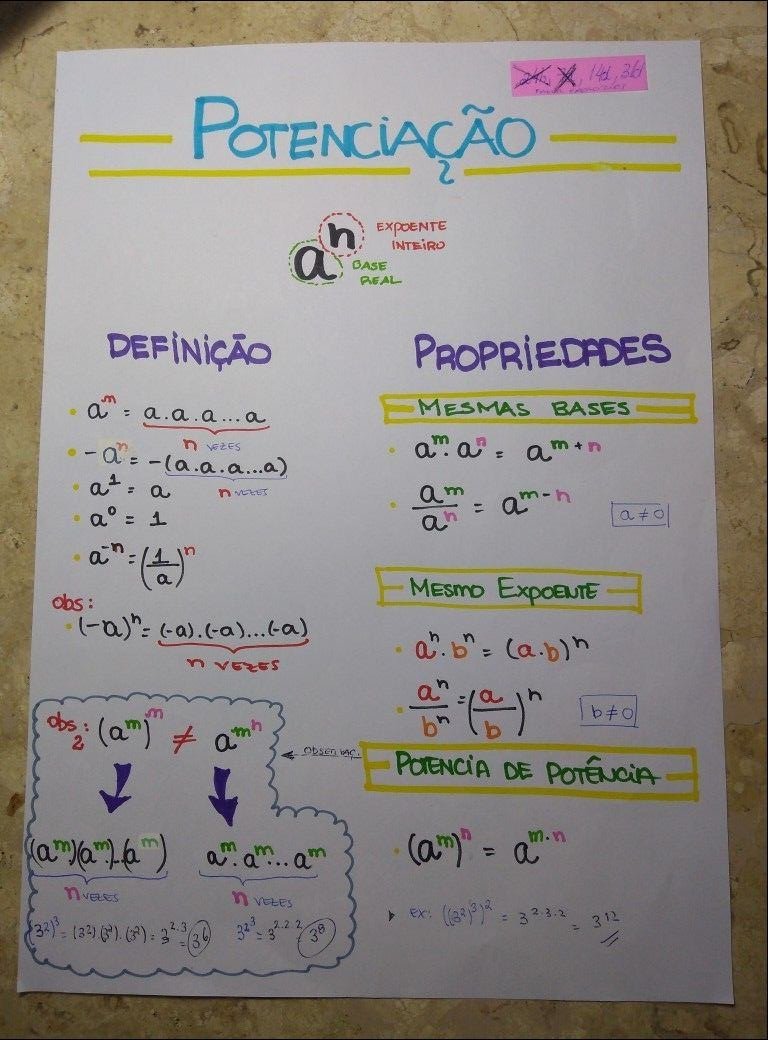 24h, 7d, 14d, 31d
POTENCIAÇÃO
aⁿ
EXPOENTE
INTEIRO
BASE
REAL
DEFINIÇÃO
• aᵐ = a.a.a...a
n VEZES
• -aⁿ = -(a.a.a...a)
n VEZES
• a¹ = a
• a⁰ = 1
• a⁻ⁿ = (1/a)ⁿ
obs:
• (-a)ⁿ = (-a).(-a)...(-a)
n VEZES
obs: 2 (aᵐ)ᵐ ≠ a^m^n
(aᵐ)(aᵐ)...(aᵐ)
n VEZES
aᵐ.aᵐ...aᵐ
n VEZES
(3²)³ = (3²).(3²).(3²) = 3^2.3 = 3⁶
3^2^3 = 3^2.2.2 = 3⁸
PROPRIEDADES
MESMAS BASES
• aᵐ.aⁿ = aᵐ⁺ⁿ
• aᵐ/aⁿ = aᵐ⁻ⁿ
a ≠ 0
MESMO EXPOENTE
• aⁿ.bⁿ = (a.b)ⁿ
• aⁿ/bⁿ = (a/b)ⁿ
b ≠ 0
OBSERVAÇ.
POTENCIA DE POTÊNCIA
• (aᵐ)ⁿ = a^m.n
ex: ((3²)³)² = 3^2.3.2 = 3¹²